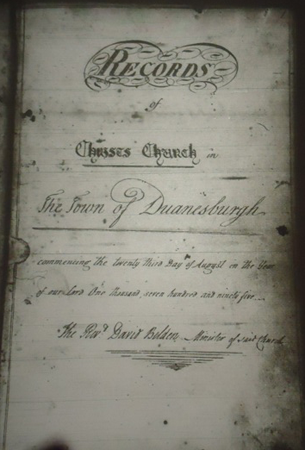 RECORDS
of
Christs Church in
The Town of Duanesburgh
commencing the twenty third Day of August in the Year
of our Lord One thousand, seven hundred and ninety five
The Revd David Belden Minister of said Church